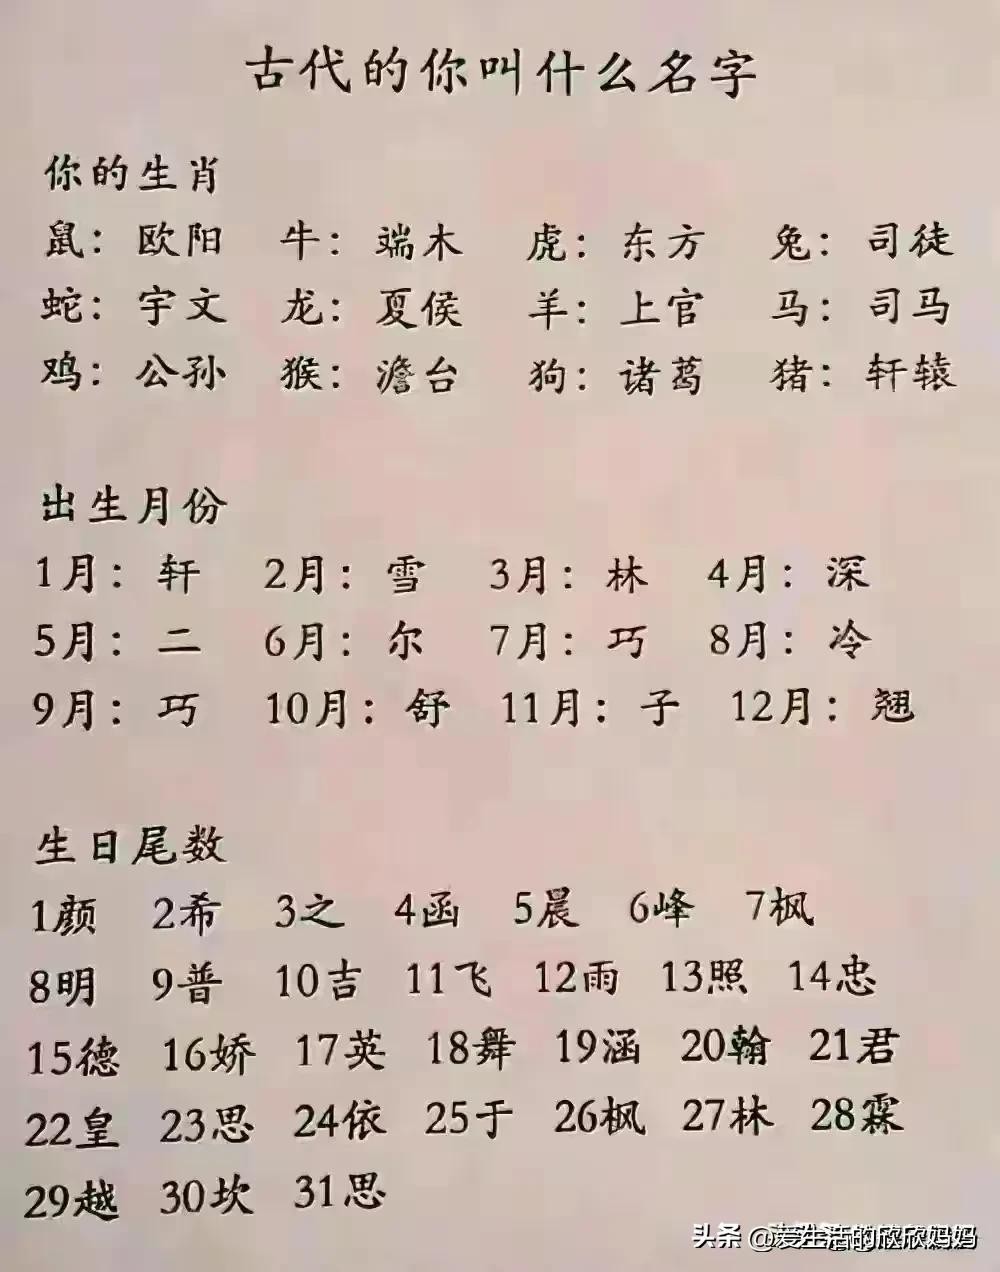 古代的你叫什么名字
你的生肖
鼠：欧阳 牛：端木 虎：东方 兔：司徒
蛇：宇文 龙：夏侯 羊：上官 马：司马
鸡：公孙 猴：澹台 狗：诸葛 猪：轩辕
出生月份
1月：轩 2月：雪 3月：林 4月：深
5月：二 6月：尔 7月：巧 8月：冷
9月：巧 10月：舒 11月：子 12月：翘
生日尾数
1颜 2希 3之 4函 5晨 6峰 7枫
8明 9普 10吉 11飞 12雨 13照 14忠
15德 16娇 17英 18舞 19涵 20翰 21君
22皇 23思 24依 25于 26枫 27林 28霖
29越 30坎 31思
头条 @爱生活的欣欣妈妈